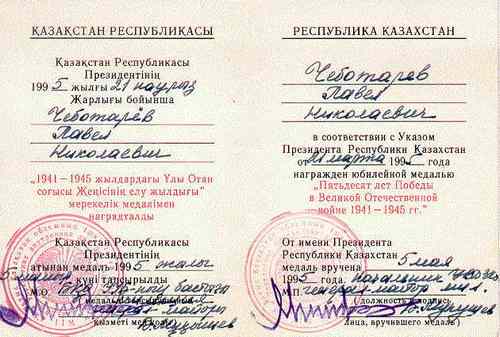 ҚАЗАҚСТАН РЕСПУБЛИКАСЫ
Қазақстан Республикасы
Президентінің
1995 жылғы 21 наурыз
Жарлығы бойынша
Чеботарёв
Павел
Николаевич
„1941–1945 жылдардағы Ұлы Отан
соғысы Жеңісінің елу жылдығы"
мерекелік медалімен
наградталды
Қазақстан Республикасы
Президентінің
атынан медаль 1995 жылы
күні тапсырылды
М.О.
РЕСПУБЛИКА КАЗАХСТАН
Чеботарев
Павел
Николаевич
в соответствии с Указом
Президента Республики Казахстан
от 21 марта 1995 года
награжден юбилейной медалью
"Пятьдесят лет Победы
в Великой Отечественной
войне 1941–1945 гг."
От имени Президента
Республики Казахстан 5 мая
медаль вручена
1995 года начальник
М.П. генерал-майор
(должность и подпись
лица, вручившего медаль)